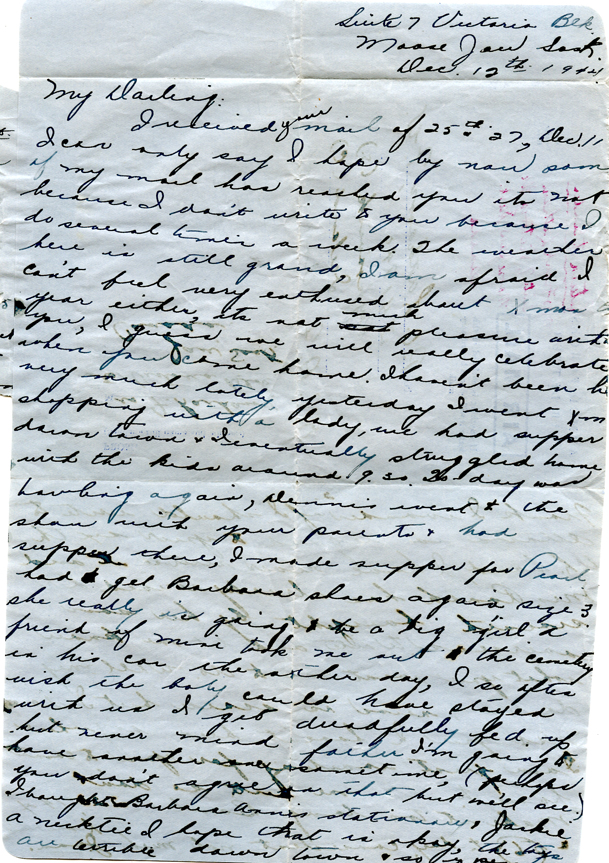 Suite 7 Victoria Blk.
Moose Jaw Sask.
Dec. 12th. 194
My Darling:
I received your mail of 25th. 27, Dec. 11
I can only say I hope by now som
of my mail has reached you its not
because I don't write to you because I
do several times a week. The weather
here is still grand, I am afraid I
can't feel very enthused about Xmas
year either, its not much pleasure with
you, I guess we will really celebrate
when you come home. I haven't been h
very much lately yesterday I went Xm
shopping with a lady, we had supper
down town & I eventually struggled home
with the kids around 9.30. To day was
bowling again, Dennis went to the
show with your parents & had
supper there, I made supper for Pearl,
had to get Barbara shoes again size 3
she really is going to be a big girl a
friend of mine took me out to the cemetery
in his car the other day, I so often
wish the baby could have stayed
with us I get dreadfully fed up
but never mind father I'm going to
have another one sometime, (perhaps
you don't agree on that but we'll see.)
I bought Barbara Ann's stationary, Jackie
a necktie I hope that is okay, the
are terrible down town & so